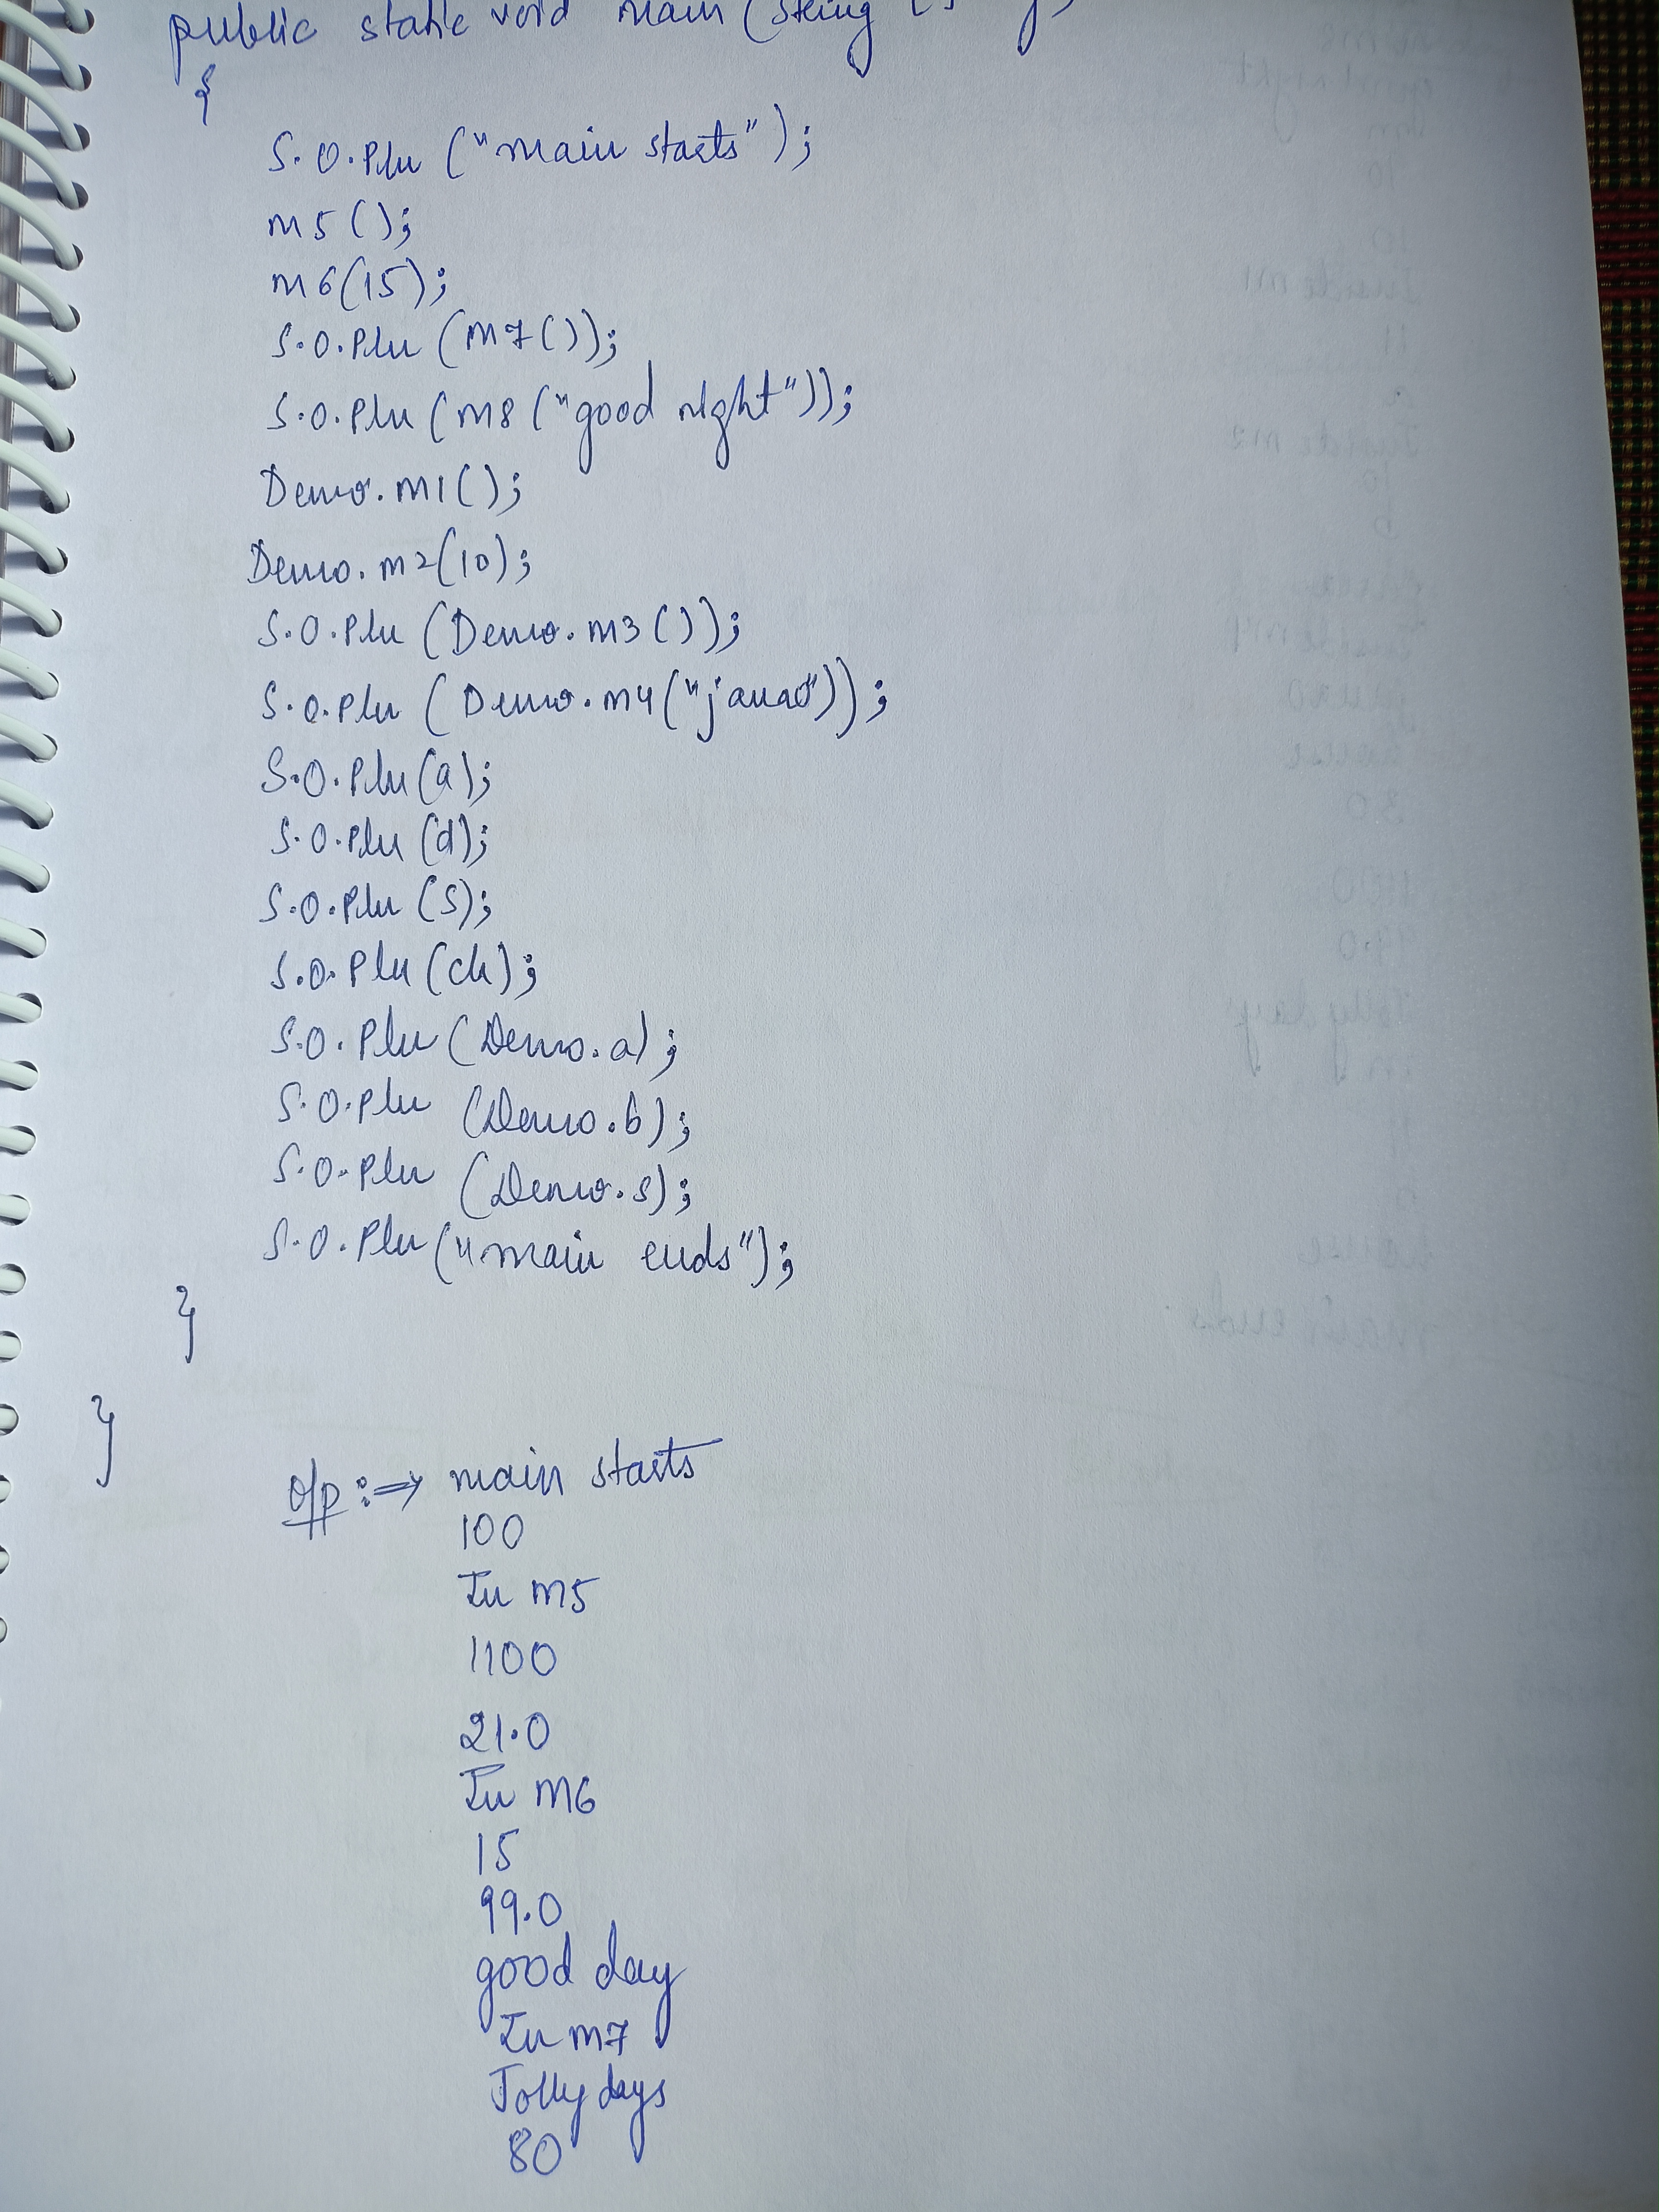 public static void main (String
{
S.O.Pln ("main starts");
m5 ();
m6(15);
S.O.Pln (m7());
S.O.Pln (m8 ("good night"));
Demo.m1();
Demo.m2(10);
S.O.Pln (Demo.m3());
S.O.Pln (Demo.m4("java"));
S.O.Pln(a);
S.O.Pln (d);
S.O.Pln (s);
S.O.Pln (ch);
S.O.Pln (Demo.a);
S.O.Pln (Demo.b);
S.O.Pln (Demo.s);
S.O.Pln ("main ends");
}
}
O/p :=> main starts
100
In m5
1100
21.0
In m6
15
99.0
good day
In m7
Jolly days
80